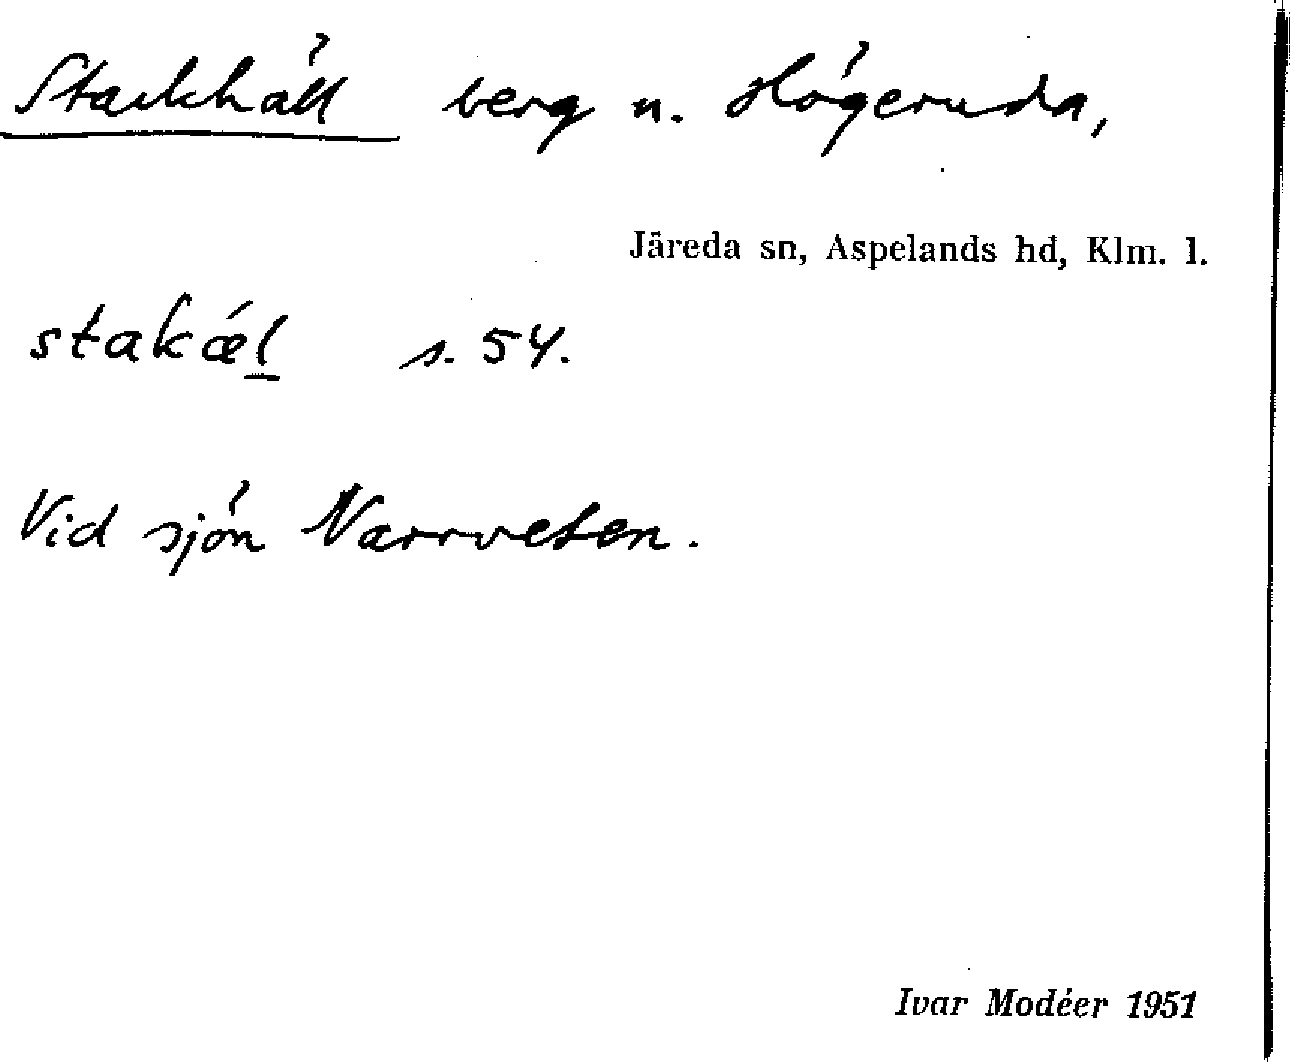 Stackhäll berg n. Högeruda,
Järeda sn, Aspelands hd, Klm. l.
stakǽl s. 54.
Vid sjön Narrveten.
Ivar Modéer 1951